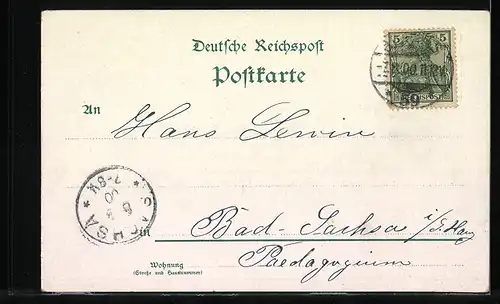 Deutsche Reichspost
Postkarte
5 5
.00.11
*19
An
Hans Lewin
* SACHSA *
7-8V.
00
8
in Bad-Sachsa i/S. Harz
Paedagogium
Wohnung
(Straße und Hausnummer)